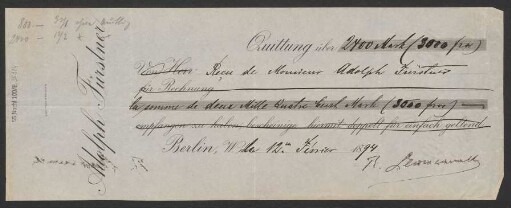 Quittung über 2400 Mark (3000 frs)
Von Herr Reçu de Monsieur Adolph Fürstner
für Rechnung
la somme de deux Mille Quatre Cent Mark (3000 frs)
empfangen zu haben, bescheinige hiermit doppelt für einfach geltend
Berlin, W. le 12 Février 1894
R. Leoncavallo
Adolph Fürstner